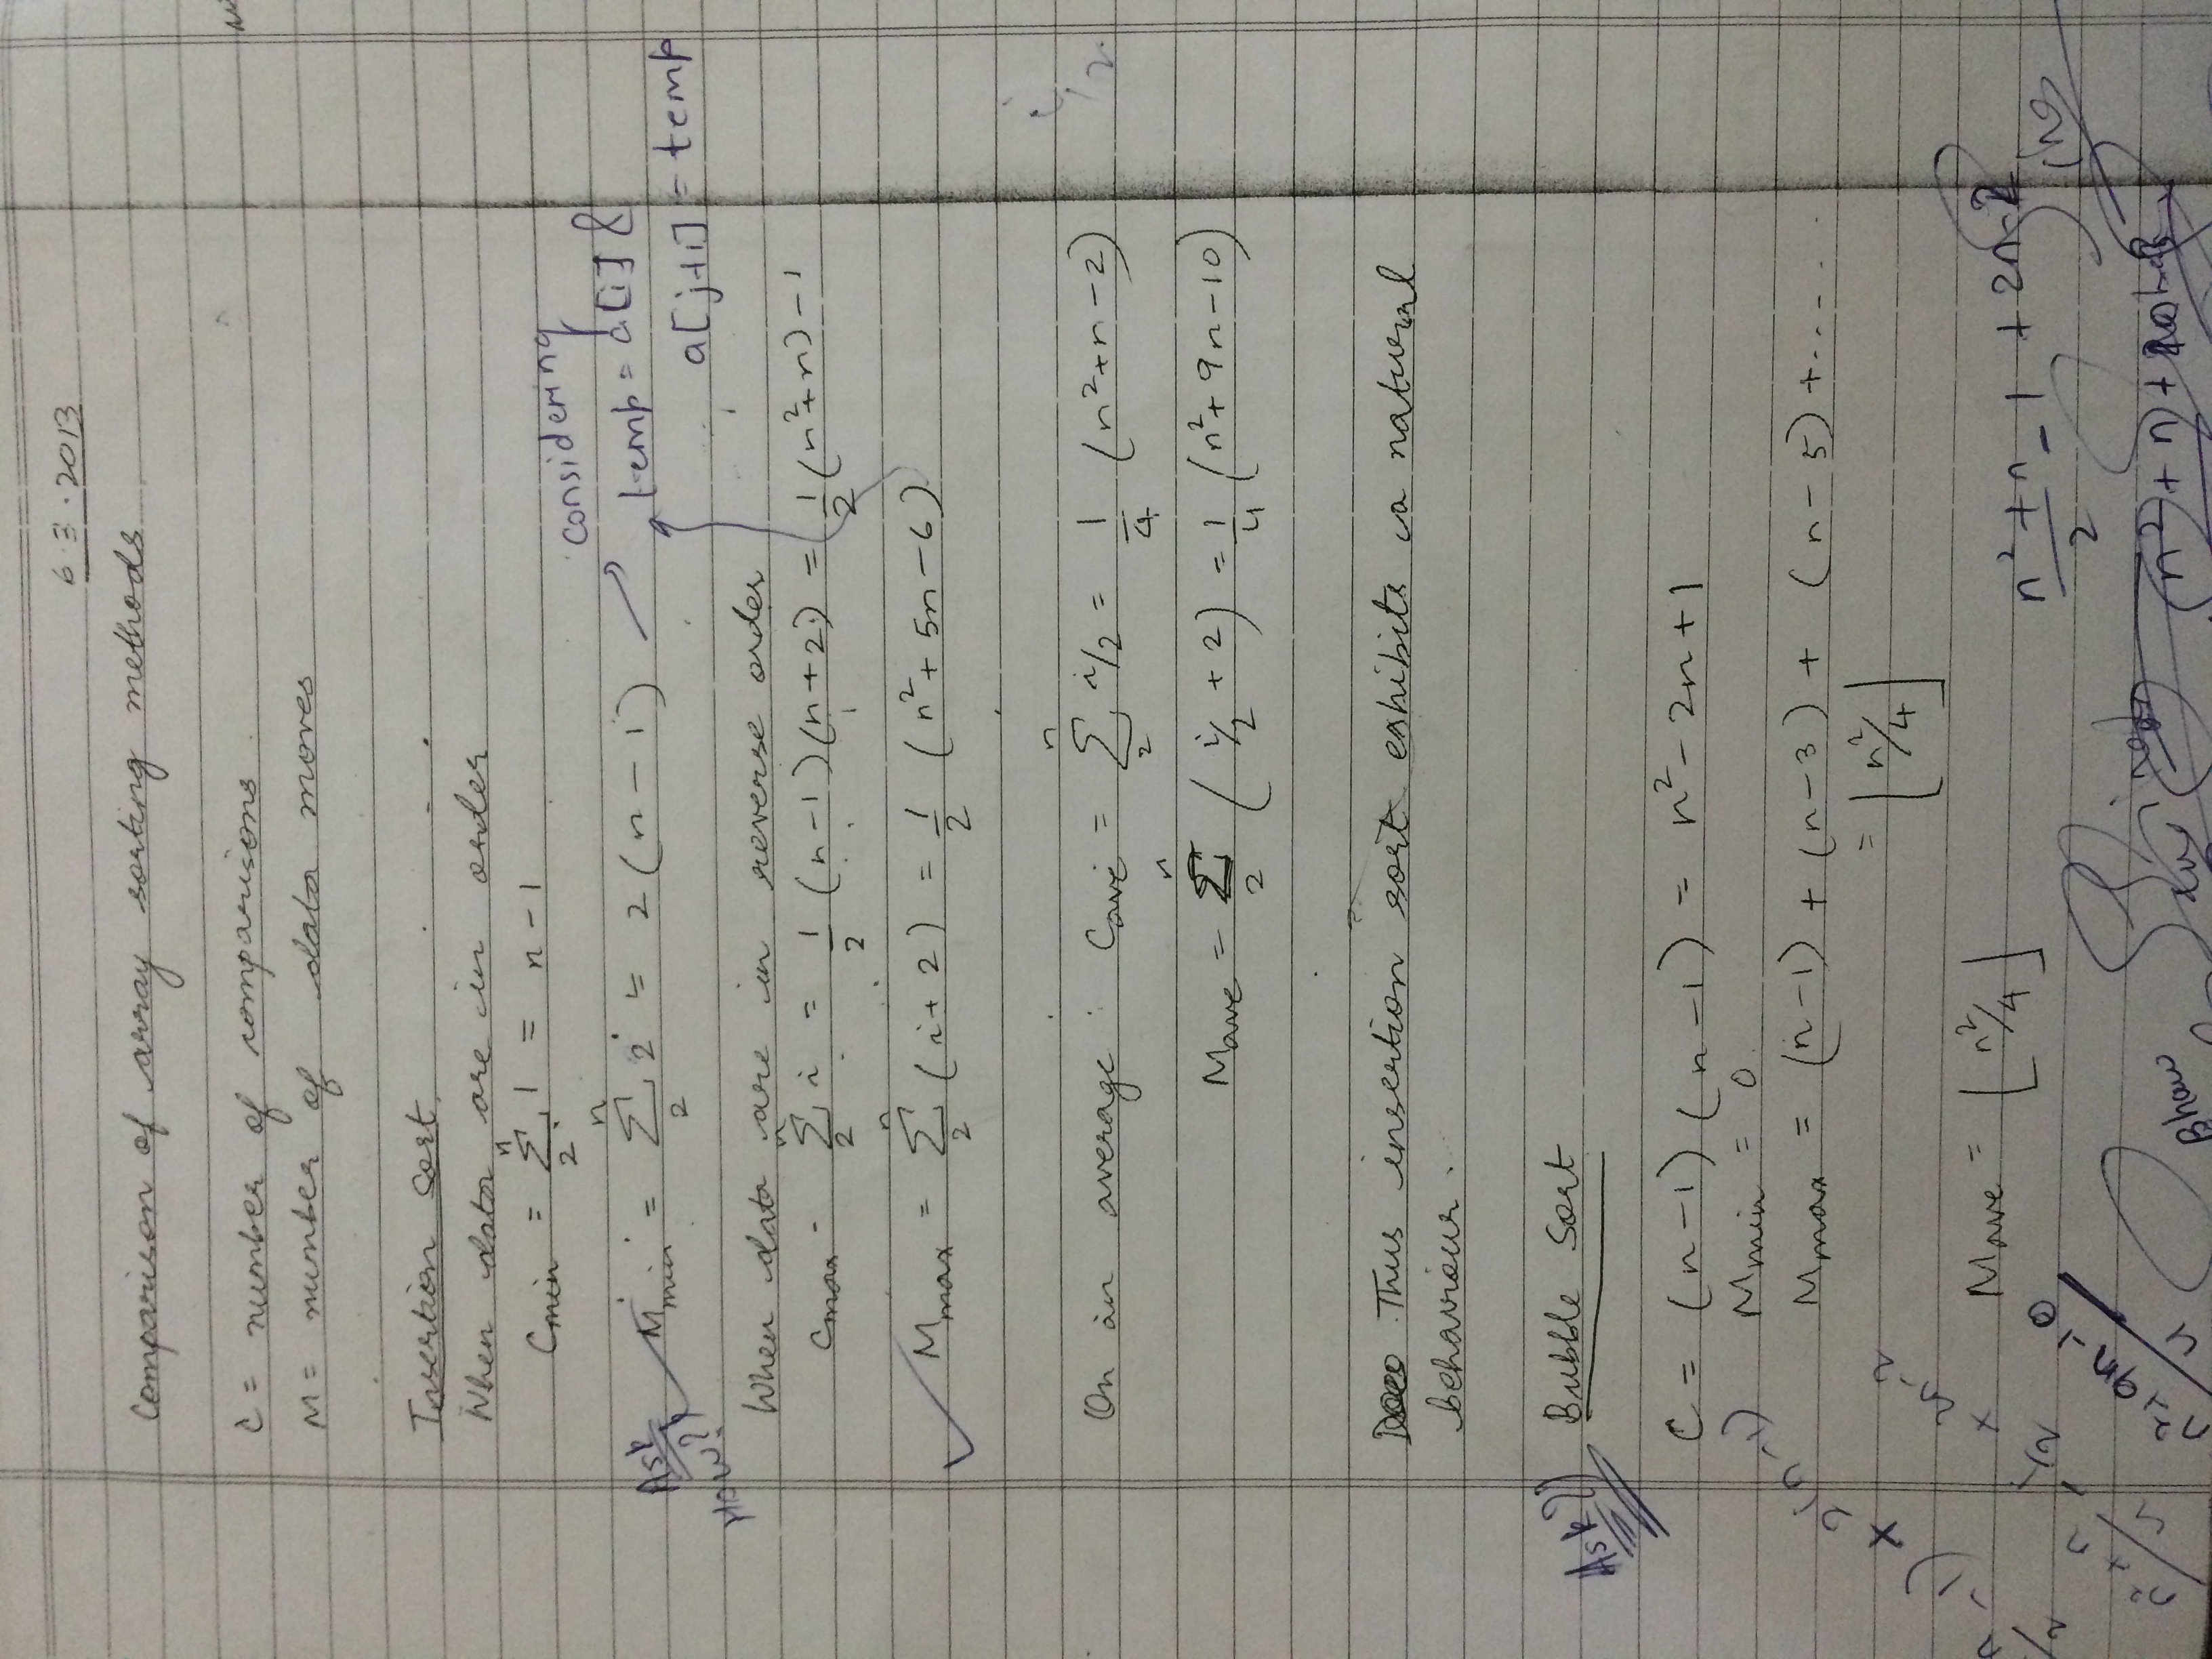 6.3.2013
Comparison of array sorting methods
C = number of comparisons.
M = number of data moves
Insertion Sort
When data are in order
Cmin = n Σ 2 1 = n - 1
Ask How?
Mmin = n Σ 2 2 = 2(n - 1)
considering
temp = a[i] &
a[j+1] = temp
When data are in reverse order
Cmax = n Σ 2 i = 1/2 (n-1)(n+2) = 1/2 (n²+n) - 1
Mmax = n Σ 2 (i+2) = 1/2 (n² + 5n - 6)
On an average : Cave = n Σ 2 i/2 = 1/4 (n²+n-2)
Mave = n Σ 2 (i/2 + 2) = 1/4 (n² + 9n - 10)
Thus insertion sort exhibits a natural
behaviour.
Ask??
Bubble Sort
C = (n-1)(n-1) = n² - 2n + 1
Mmin = 0.
Mmax = (n-1) + (n-3) + (n-5) + ....
= ⌊n²/4⌋
Mave = ⌊n²/4⌋
n²+n/2 - 1 + 2n-2
× 2(n-1)
1/2 × 2n-2
n²+n/4
n²+9n-10/4
Bhaw
(n²+n)+